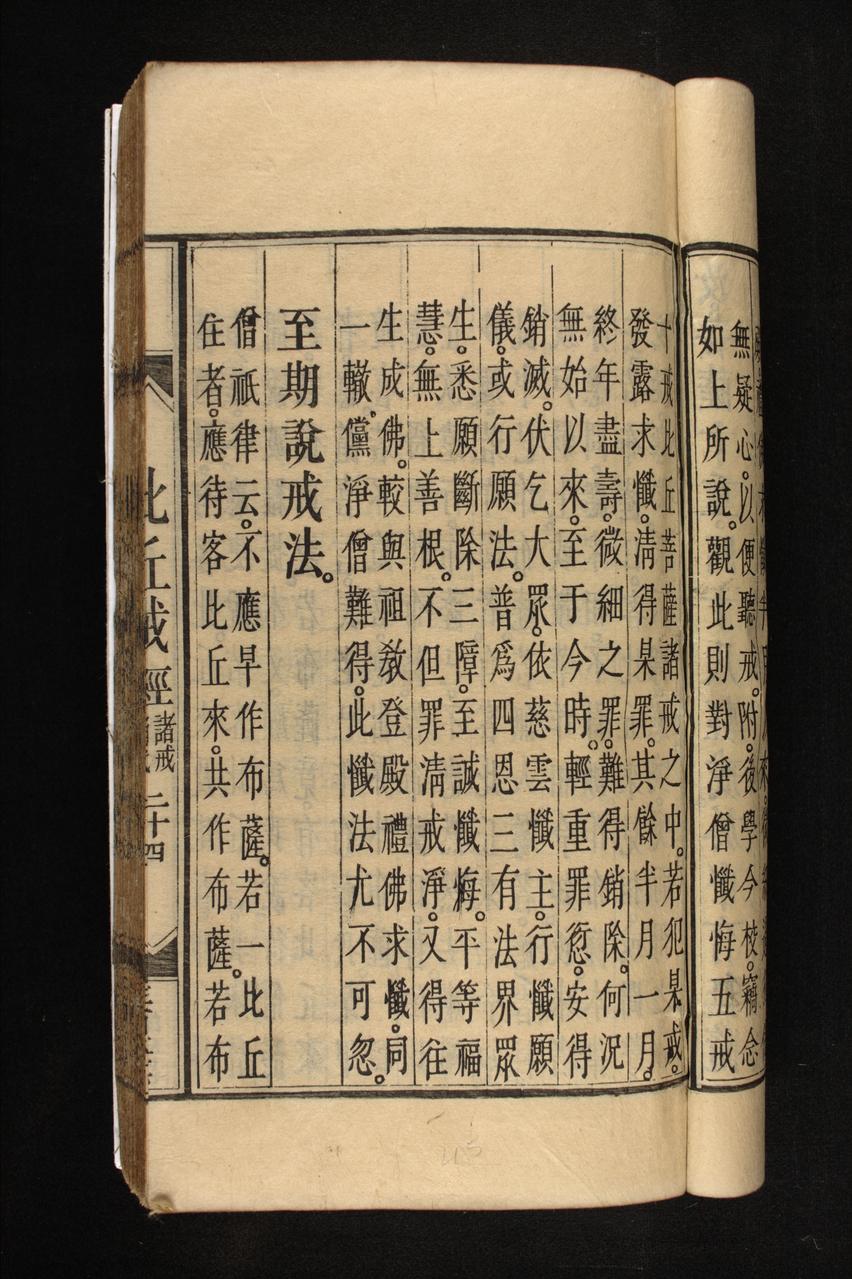 無疑心。以便聽戒。附。後學今校。竊念
如上所說。觀此則對淨僧懺悔五戒
十戒比丘菩薩諸戒之中。若犯某戒。
發露求懺。清得某罪。其餘半月一月。
終年盡壽。微細之罪。難得銷除。何況
無始以來。至于今時。輕重罪愆。安得
銷滅。伏乞大眾。依慈雲懺主。行懺願
儀。或行願法。普為四恩三有法界眾
生。悉願斷除三障。至誠懺悔。平等福
慧。無上善根。不但罪清戒淨。又得往
生成佛。較與祖教登殿禮佛求懺。同
一轍。儻淨僧難得。此懺法尤不可忽。
至期說戒法。
僧祇律云。不應早作布薩。若一比丘
住者。應待客比丘來。共作布薩。若布
比丘戒經 諸戒 二十四